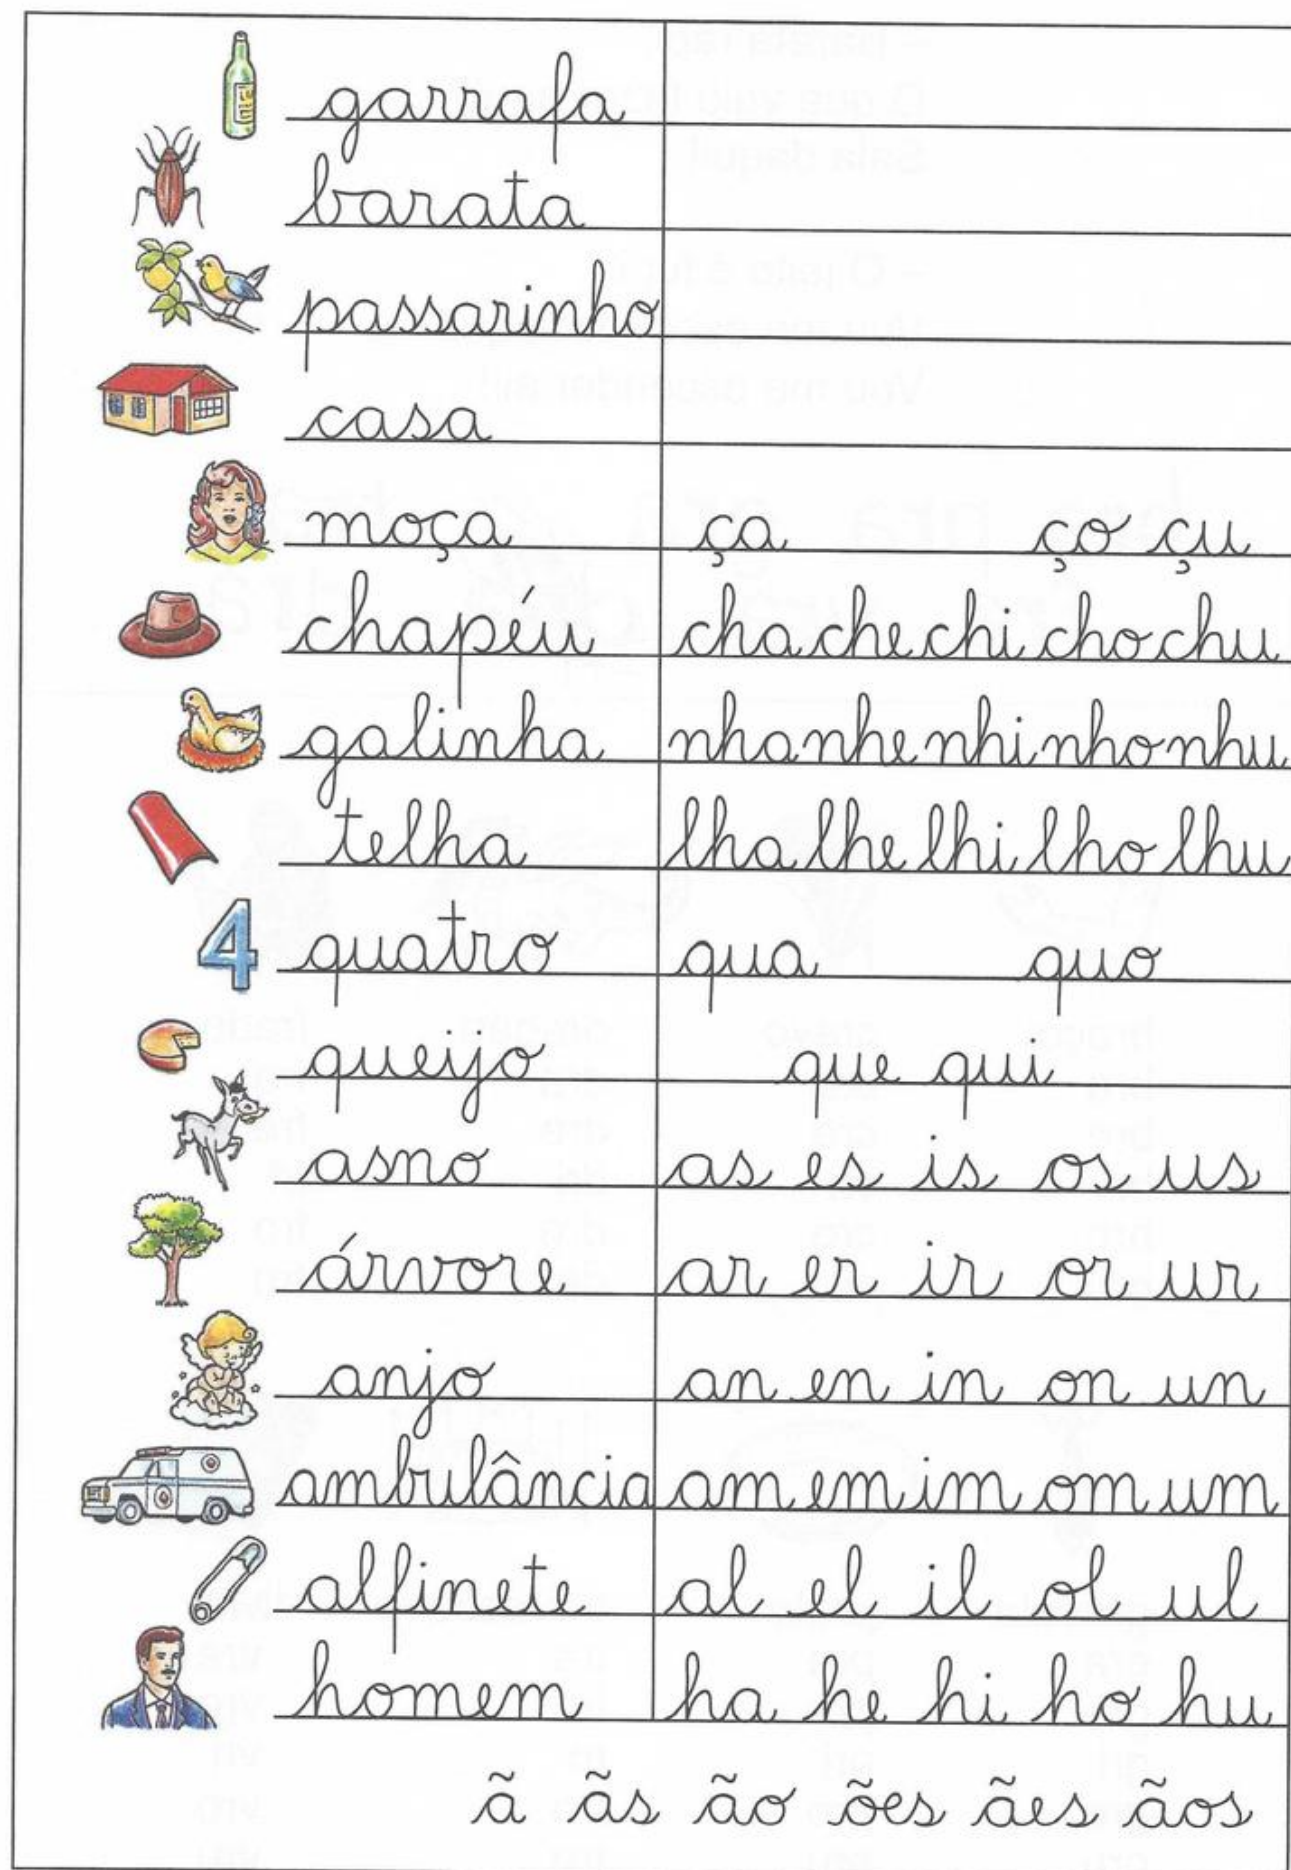 garrafa
barata
passarinho
casa
moça ça ço çu
chapéu cha che chi cho chu
galinha nha nhe nhi nho nhu
telha lha lhe lhi lho lhu
4 quatro qua quo
queijo que qui
asno as es is os us
árvore ar er ir or ur
anjo an en in on un
ambulância am em im om um
alfinete al el il ol ul
homem ha he hi ho hu
ã ãs ão ões ães ãos